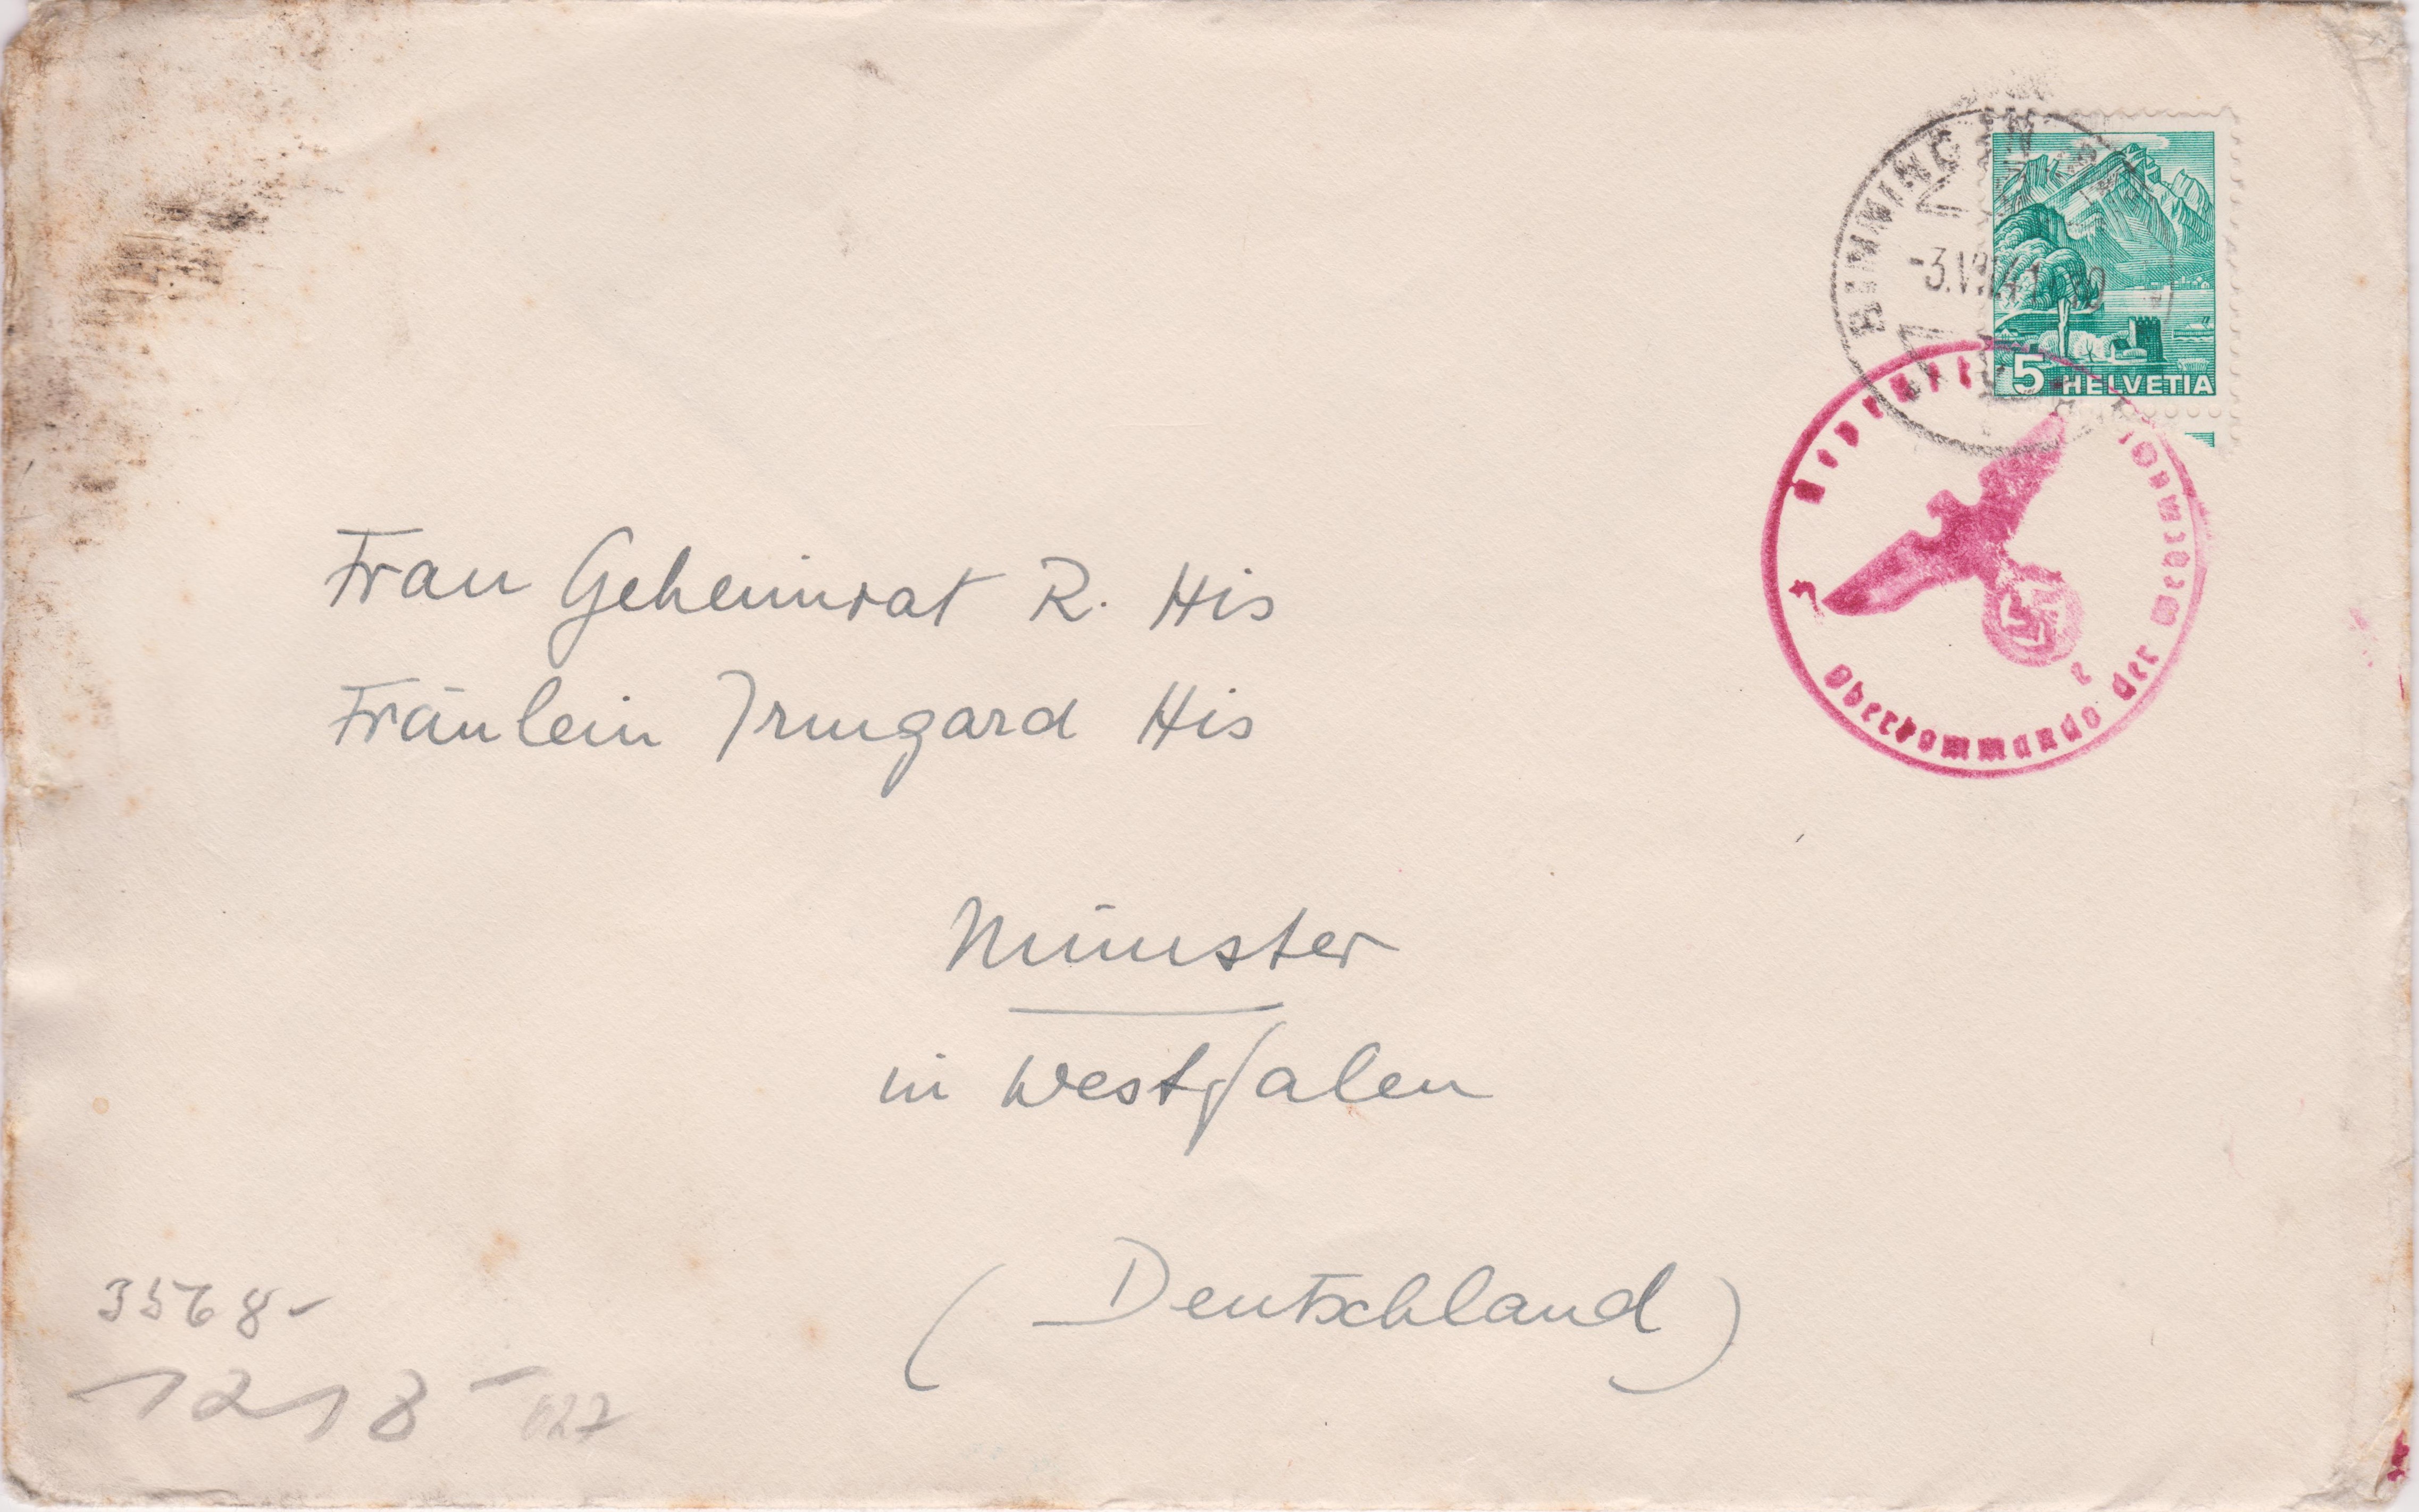 BINNINGEN
-3.V
41
5 HELVETIA
Geprüft
Oberkommando der Wehrmacht
Frau Geheimrat R. His
Fräulein Irmgard His
Münster
in Westfalen
(Deutschland)
3568-
1218-